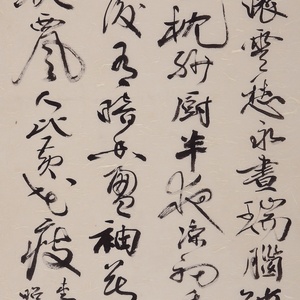 濃雲愁永晝瑞腦
枕紗厨半夜凉初
後有暗香盈袖莫
風人比黄花瘦